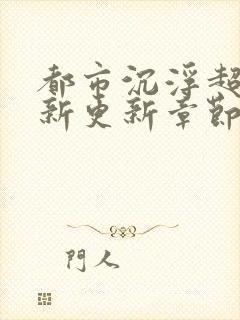 都市沉浮超
新更新章節
門人